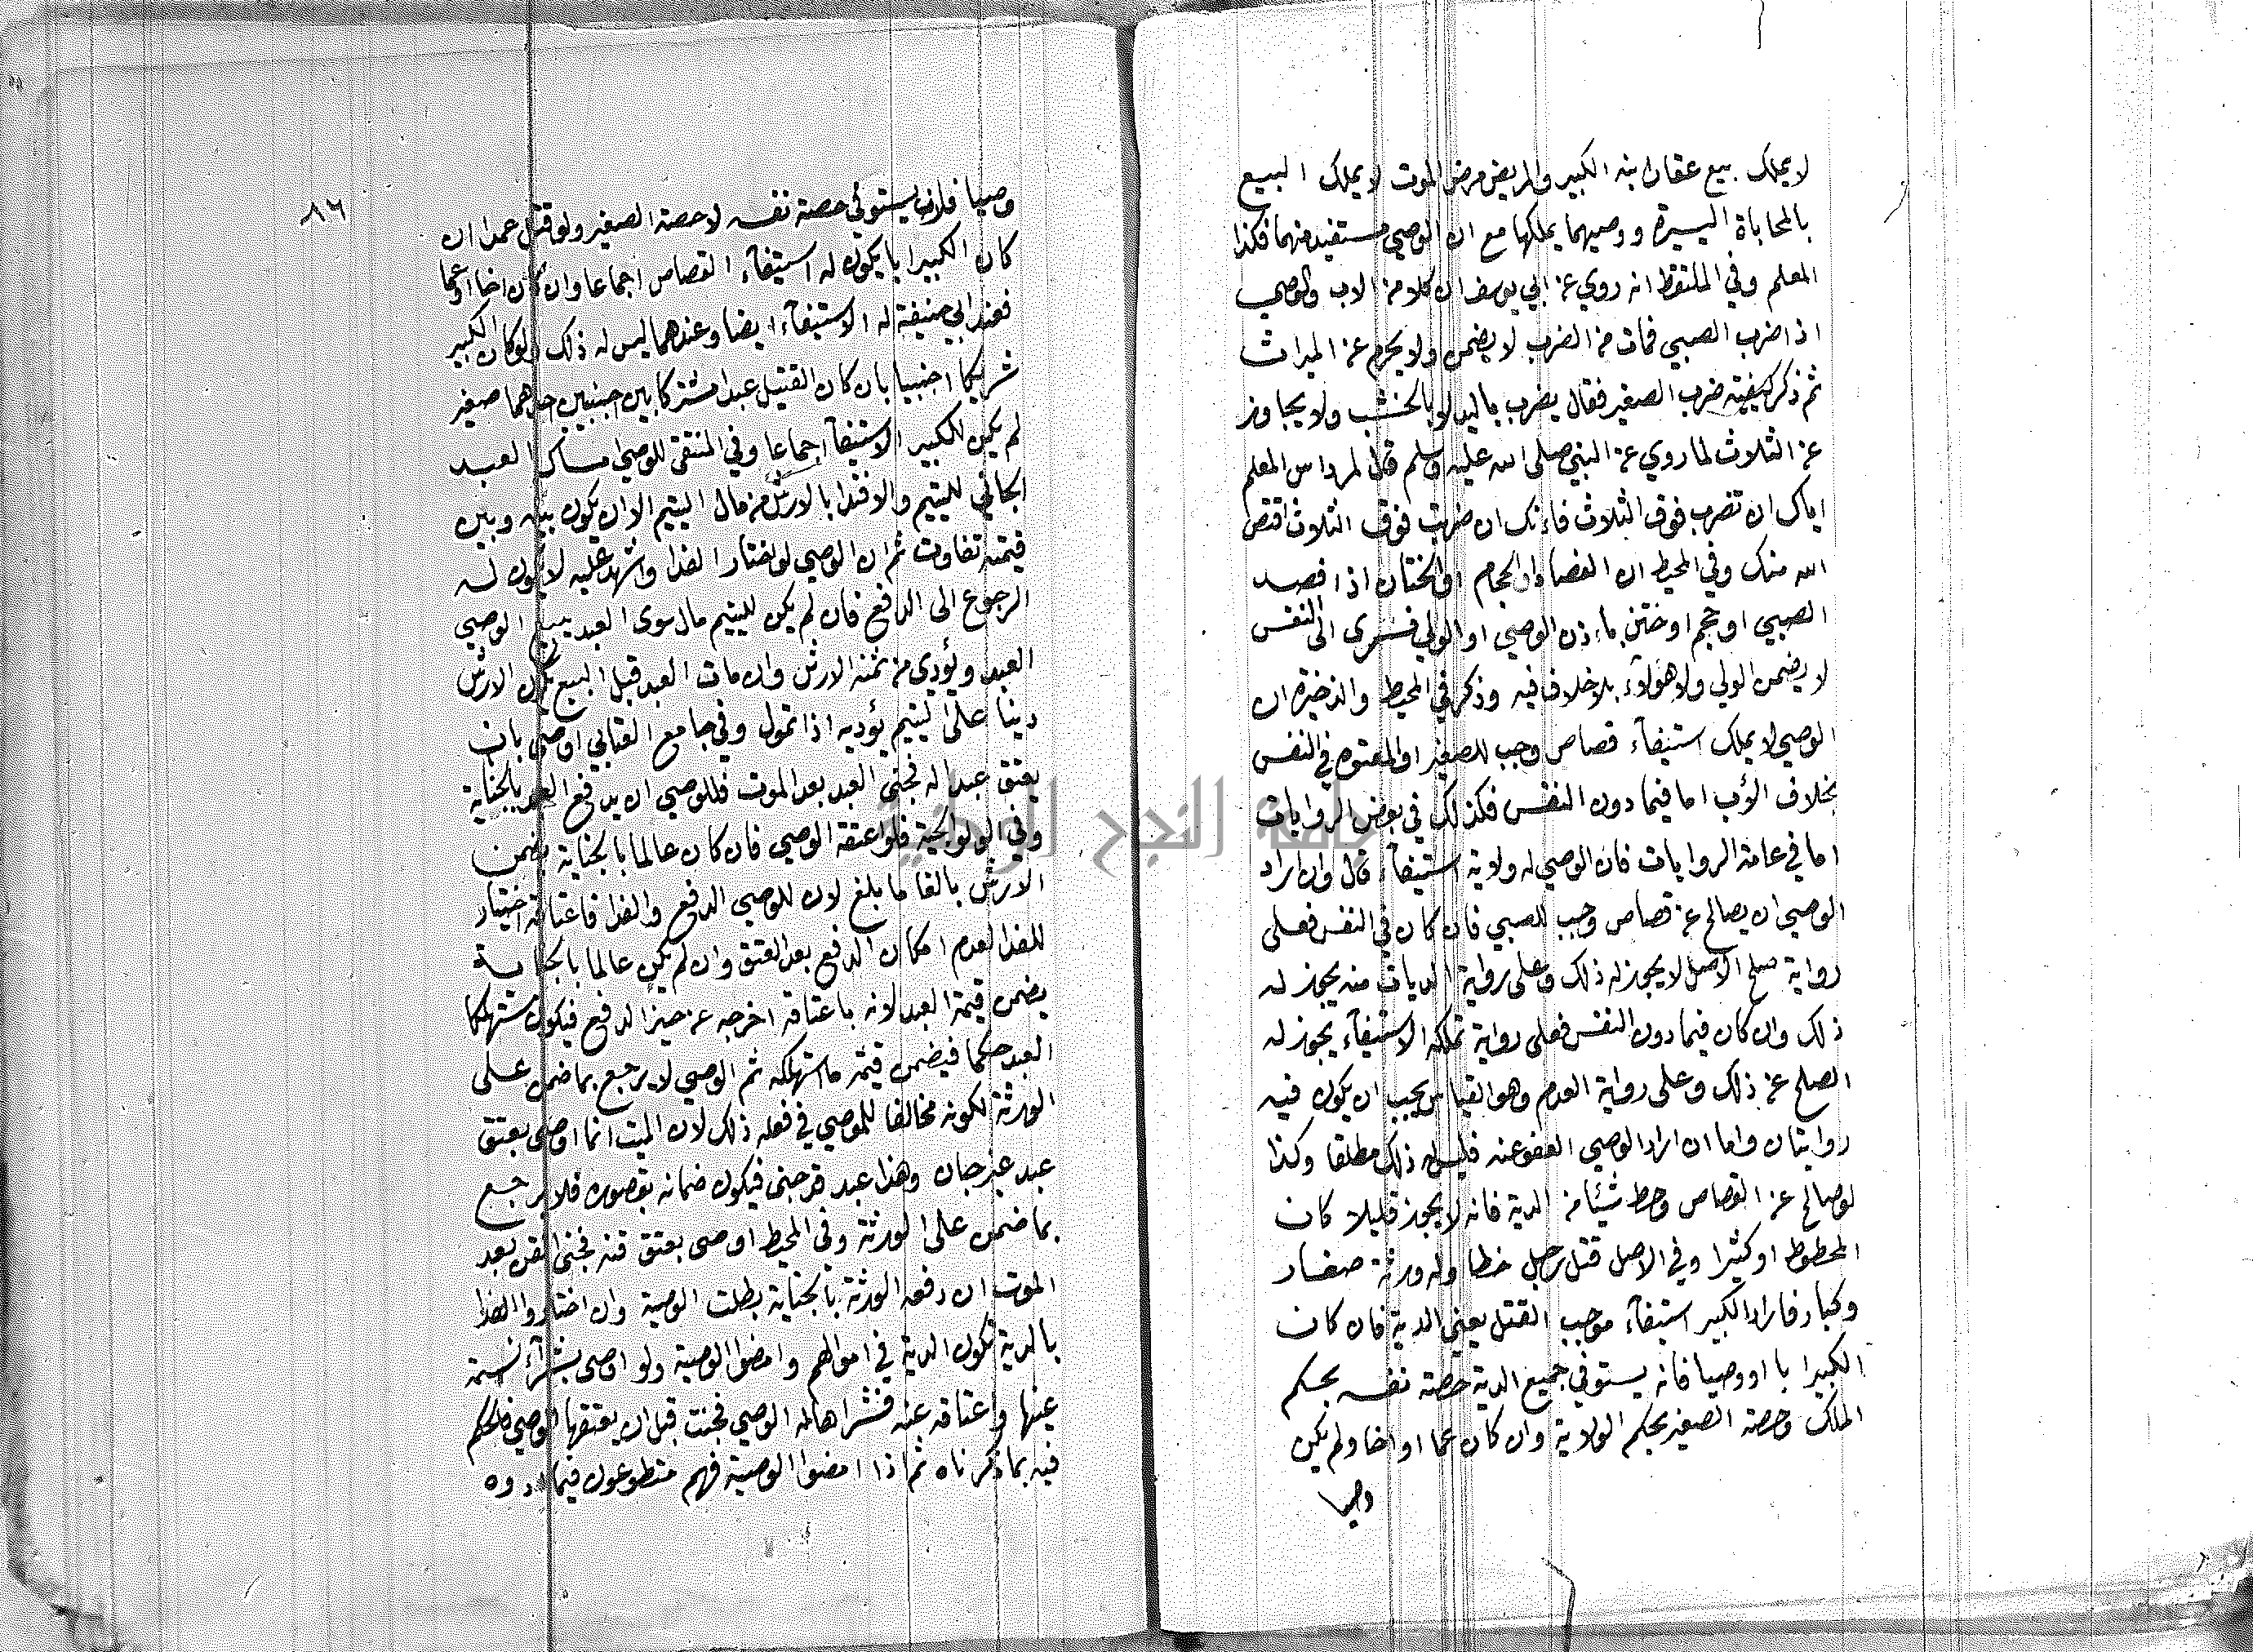 لا يملك بيع عقار ابنه الكبير والمريض مرض الموت لا يملك البيع
بالمحاباة اليسيرة ووصيهما يملكها مع ان الوصي مستفيد منهما فكذا
المعلم وفي الملتقط انه روي عن ابي يوسف ان كلا من الاب والوصي
اذا ضرب الصبي فمات من الضرب لا يضمن ولا يحرم عن الميراث
ثم ذكر كيفية ضرب الصغير فقال يضرب باليد لا بالخشب ولا يجاوز
عن الثلاث لما روي عن النبي صلى الله عليه وسلم قال لمرداس المعلم
اياك ان تضرب فوق الثلاث فاءنك ان ضربت فوق الثلاث اقتص
الله منك وفي المحيط ان الفصاد او الحجام او الختان اذا فصد
الصبي او حجم او ختن باءذن الوصي او الولي فسرى الى النفس
لا يضمن الولي ولا هؤلاء بلا خلاف فيه وذكر في المحيط والذخيرة ان
الوصي لا يملك استيفآء قصاص وجب للصغير او المعتوه في النفس
بخلاف الأب اما فيما دون النفس فكذلك في بعض الروايات
اما في عامة الروايات فان الوصي له ولاية استيفآء قال وان اراد
الوصي ان يصالح عن قصاص وجب للصبي فان كان في النفس فعلى
رواية صلح الأصل لا يجوز له ذلك وعلى رواية الديات منه يجوز له
ذلك وان كان فيما دون النفس فعلى رواية تملكه الاستيفآء يجوز له
الصلح عن ذلك وعلى رواية العدم وهو القياس يجب ان يكون فيه
روايتان واما ان اراد الوصي العفو عنه فليس له ذلك مطلقا وكذا
لو صالح عن القصاص وحط شيئا من الدية فانه لا يجوز قليلا كان
المحطوط او كثيرا وفي الاصل قتل رجل خطا وله ورثة صغار
وكبار فاراد الكبير استيفآء موجب القتل يعني الدية فان كان
الكبير ابا او وصيا فانه يستوفي جميع الدية حصة نفسه بحكم
الملك وحصة الصغير بحكم الولاية وان كان عما او اخا ولم يكن
وصيا
٨٦
وصيا فلان يستوفي حصة نفسه لا حصة الصغير ولو قتل عمدا ان
كان الكبير ابا يكون له استيفآء القصاص اجماعا وان كان اخا او عما
فعند ابي حنيفة له الاستيفآء ايضا وعندهما ليس له ذلك ولو كان الكبير
شريكا اجنبيا بان كان القتيل عبدا مشتركا بين اجنبيين احدهما صغير
لم يكن للكبير الاستيفآ اجماعا وفي المنتقى للوصي امساك العبد
الجاني لليتيم والافتدا بالارش من مال اليتيم الا ان يكون بينه وبين
قيمته تفاوت ثم ان الوصي لو اختار الفدا واشهد عليه لا يكون له
الرجوع الى الدافع فان لم يكن لليتيم مال سوى العبد يبيع الوصي
العبد ويؤدي من ثمنه الارش وان مات العبد قبل البيع يكون الارش
دينا على اليتيم يؤديه اذا تمول وفي جامع العتابي اوصى بان
يعتق عبدا له فجنى العبد بعد الموت فللوصي ان يدفع العبد بالجناية
وفي الولوالجية فلو اعتقه الوصي فان كان عالما بالجناية يضمن
الارش بالغا ما بلغ لان للوصي الدفع والفدا فاعتاقه اختيار
للفدا لعدم امكان الدفع بعد العتق وان لم يكن عالما بالجناية
يضمن قيمة العبد لانه باعتاقه اخرجه عن حيز الدفع فيكون مستهلكا
العبد حكما فيضمن قيمة ما استهلكه ثم الوصي لا يرجع بما ضمن على
الورثة لكونه مخالفا للموصي في فعله ذلك لان الميت انما اوصى بعتق
عبد غير جان وهذا عبد قد جنى فيكون ضمانه بقصوره فلا يرجع
بما ضمن على الورثة وفي المحيط اوصى بعتق قنه فجنى القن بعد
الموت ان دفعه الورثة بالجناية بطلت الوصية وان اختاروا الفدا
بالدية تكون الدية في اموالهم وامضوا الوصية ولو اوصى بشرآء نسمة
عينها واعتاقه عنه فشراها له الوصي فجنت قبل ان يعتقها الوصي فالحكم
فيه بما ذكرناه ثم اذا امضوا الوصية فهم متطوعون فيما ادوه
جامعة النجاح الوطنية